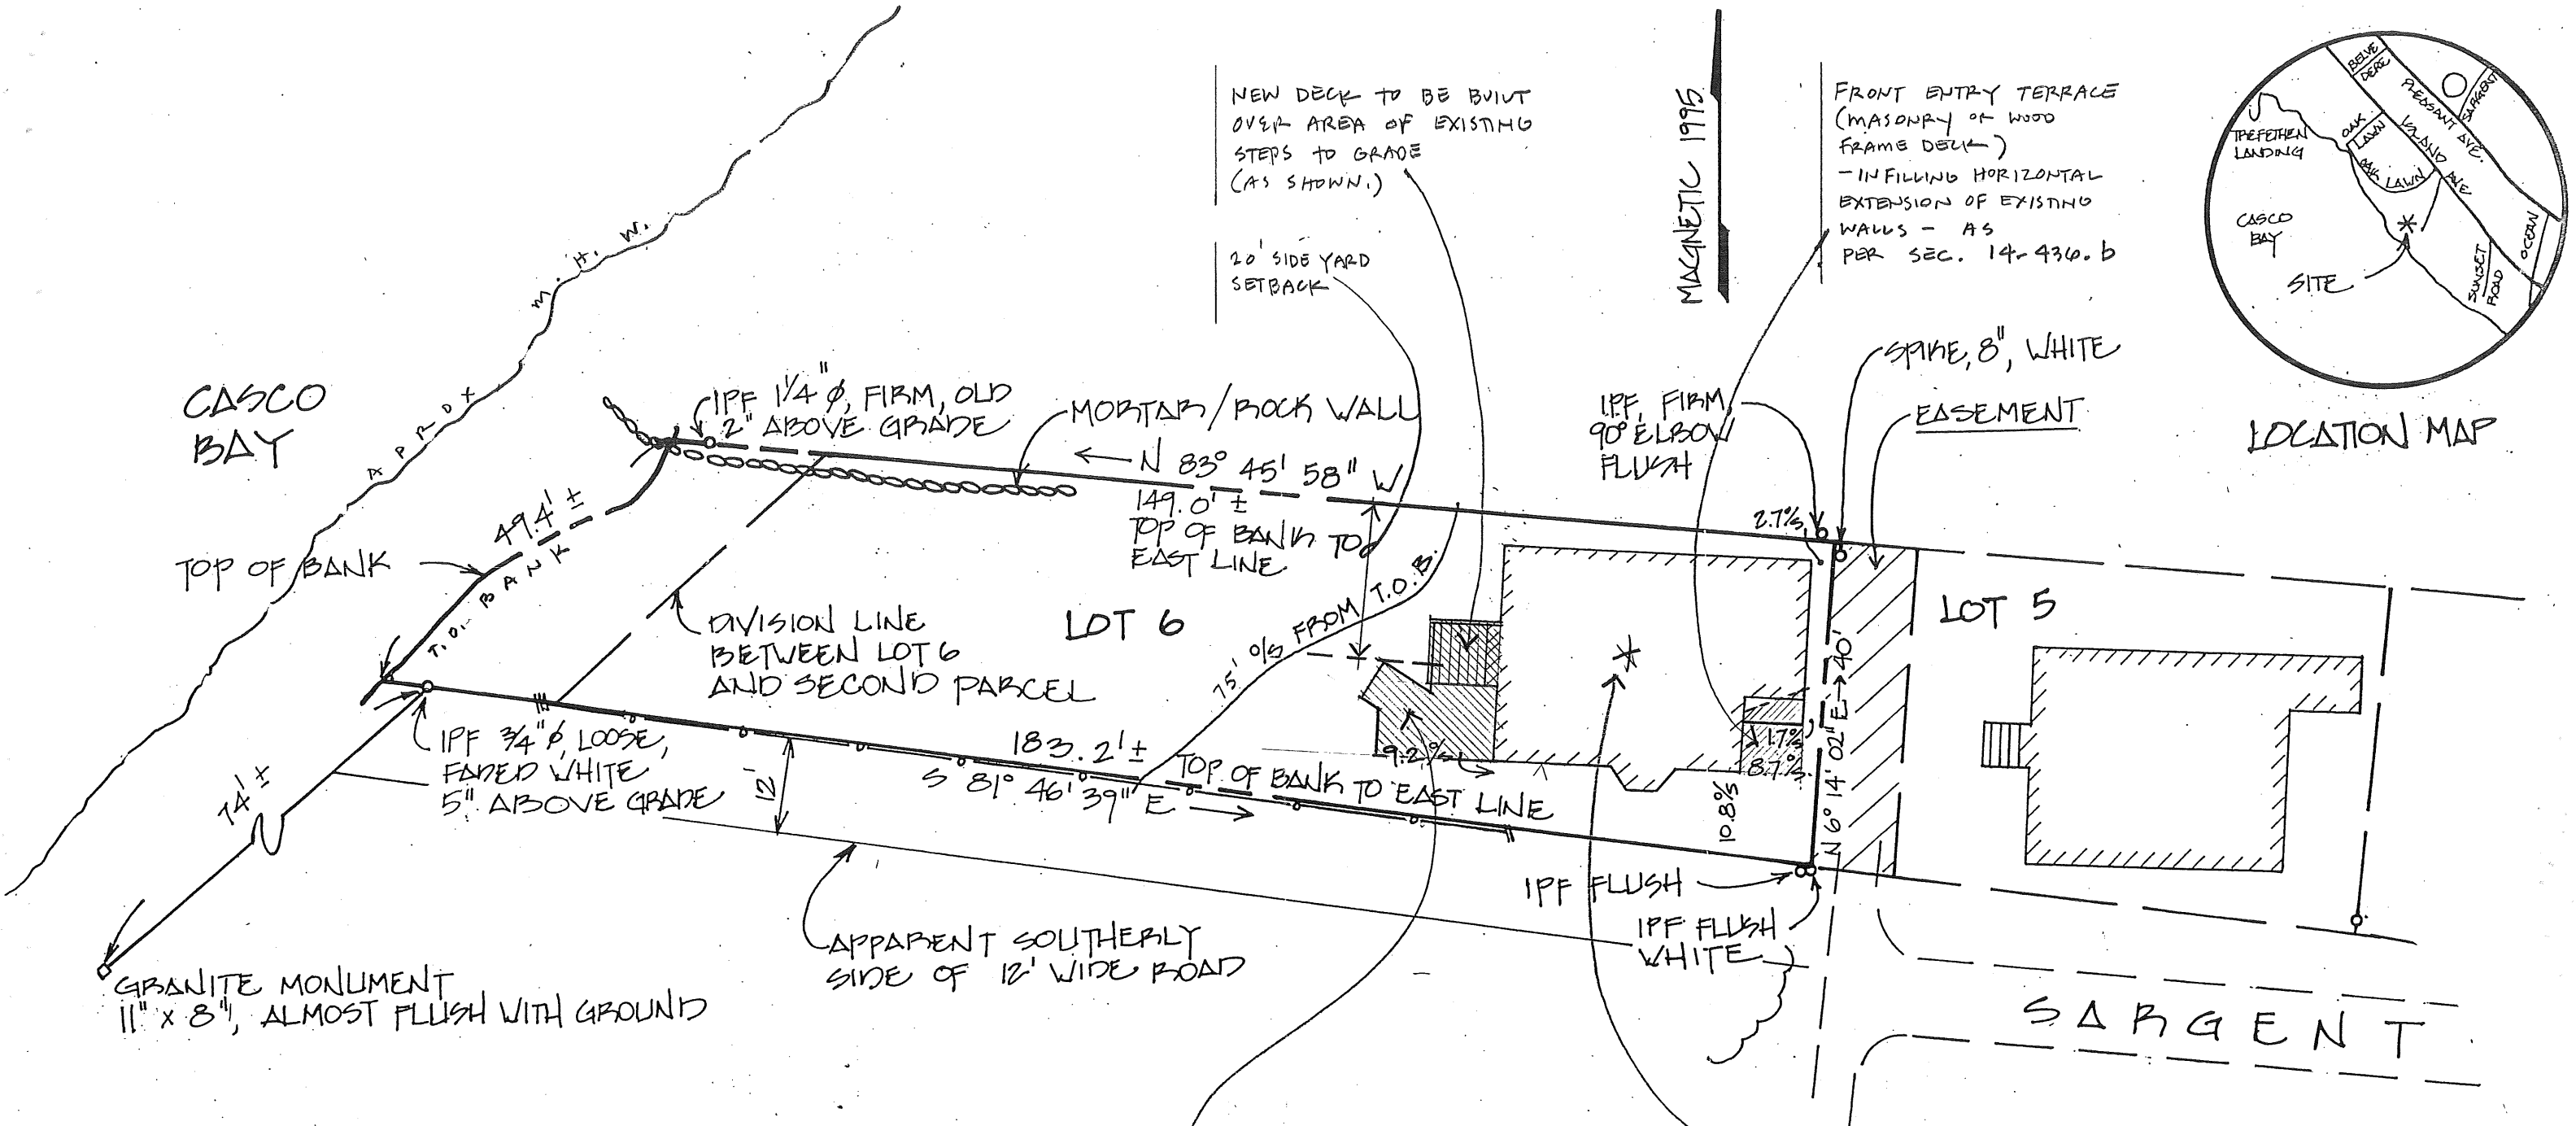 NEW DECK TO BE BUILT
OVER AREA OF EXISTING
STEPS TO GRADE
(AS SHOWN.)
20' SIDE YARD
SETBACK
MAGNETIC 1995
FRONT ENTRY TERRACE
(MASONRY OR WOOD
FRAME DECK)
- INFILLING HORIZONTAL
EXTENSION OF EXISTING
WALLS - AS
PER SEC. 14-436.b
BELVE
DERE
PLEASANT AVE.
SARGENT
TREFETHEN
LANDING
OAK
LAWN
ISLAND AVE
OAK LAWN
CASCO
BAY
SITE
SUNSET
ROAD
OCEAN
LOCATION MAP
SPIKE, 8", WHITE
EASEMENT
IPF, FIRM,
90° ELBOW
FLUSH
M.H.W.
APROX
CASCO
BAY
IPF 1 1/4" ø, FIRM, OLD
2" ABOVE GRADE
MORTAR/ROCK WALL
N 83° 45' 58" W
149.0' ±
TOP OF BANK TO
EAST LINE
2.7'%
49.4' ±
TOP OF BANK
T.O. BANK
DIVISION LINE
BETWEEN LOT 6
AND SECOND PARCEL
LOT 6
75' O/S FROM T.O.B.
LOT 5
N 6° 14' 02" E → 40'
IPF 3/4" ø, LOOSE,
FADED WHITE,
5" ABOVE GRADE
74' ±
12'
183.2' ±
TOP OF BANK TO EAST LINE
S 81° 46' 39" E
9.2 %
17%
8.7%
10.8%
IPF FLUSH
IPF FLUSH
WHITE
APPARENT SOUTHERLY
SIDE OF 12' WIDE ROAD
GRANITE MONUMENT
11" x 8", ALMOST FLUSH WITH GROUND
SARGENT